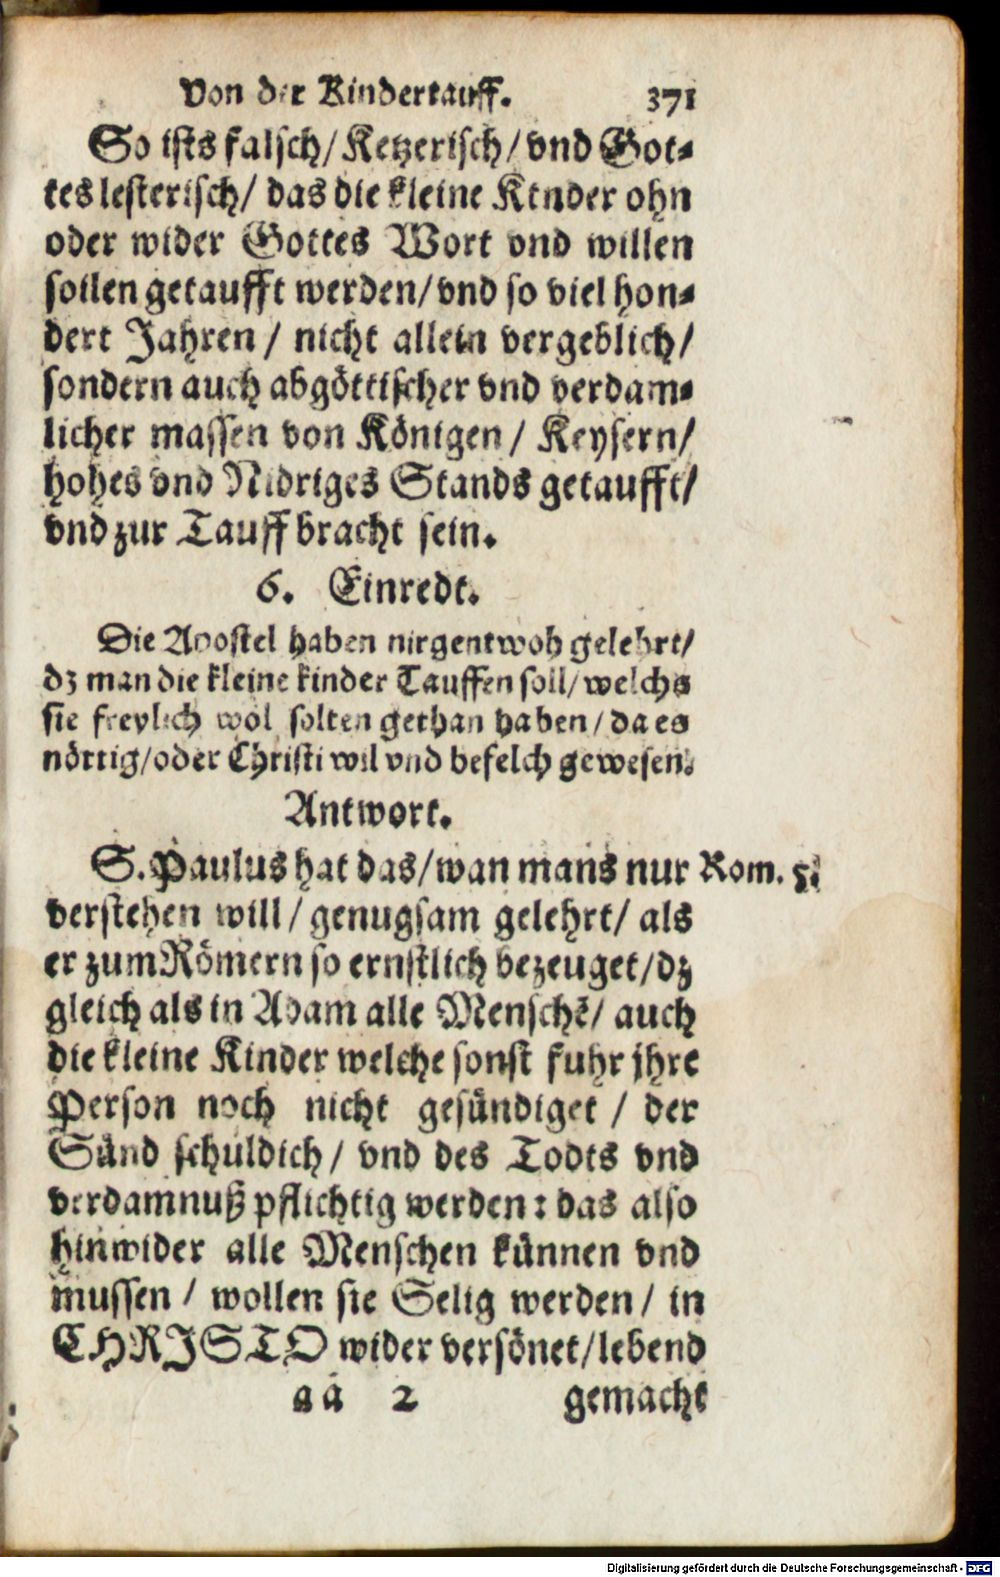 Von der Kindertauff. 371
So ists falsch/ Ketzerisch/ vnd Got-
tes lesterisch/ das die kleine Kinder ohn
oder wider Gottes Wort vnd willen
sollen getaufft werden/ vnd so viel hon-
dert Jahren / nicht allein vergeblich/
sondern auch abgöttischer vnd verdam-
licher massen von Königen / Keysern/
hohes vnd Nidriges Stands getaufft/
vnd zur Tauff bracht sein.
6. Einredt.
Die Apostel haben nirgentwoh gelehrt/
dz man die kleine kinder Tauffen soll/ welchs
sie freylich wol solten gethan haben/ da es
nöttig/ oder Christi wil vnd befelch gewesen.
Antwort.
S. Paulus hat das/ wan mans nur Rom.
verstehen will/ genugsam gelehrt/ als
er zum Römern so ernstlich bezeuget/ dz
gleich als in Adam alle Menschẽ/ auch
die kleine Kinder welche sonst fuhr jhre
Person noch nicht gesündiget / der
Sünd schuldich/ vnd des Todts vnd
verdamnuß pflichtig werden: das also
hinwider alle Menschen künnen vnd
mussen / wollen sie Selig werden/ in
CHRISTO wider versönet/ lebend
aa 2 gemacht
Digitalisierung gefördert durch die Deutsche Forschungsgemeinschaft - DFG